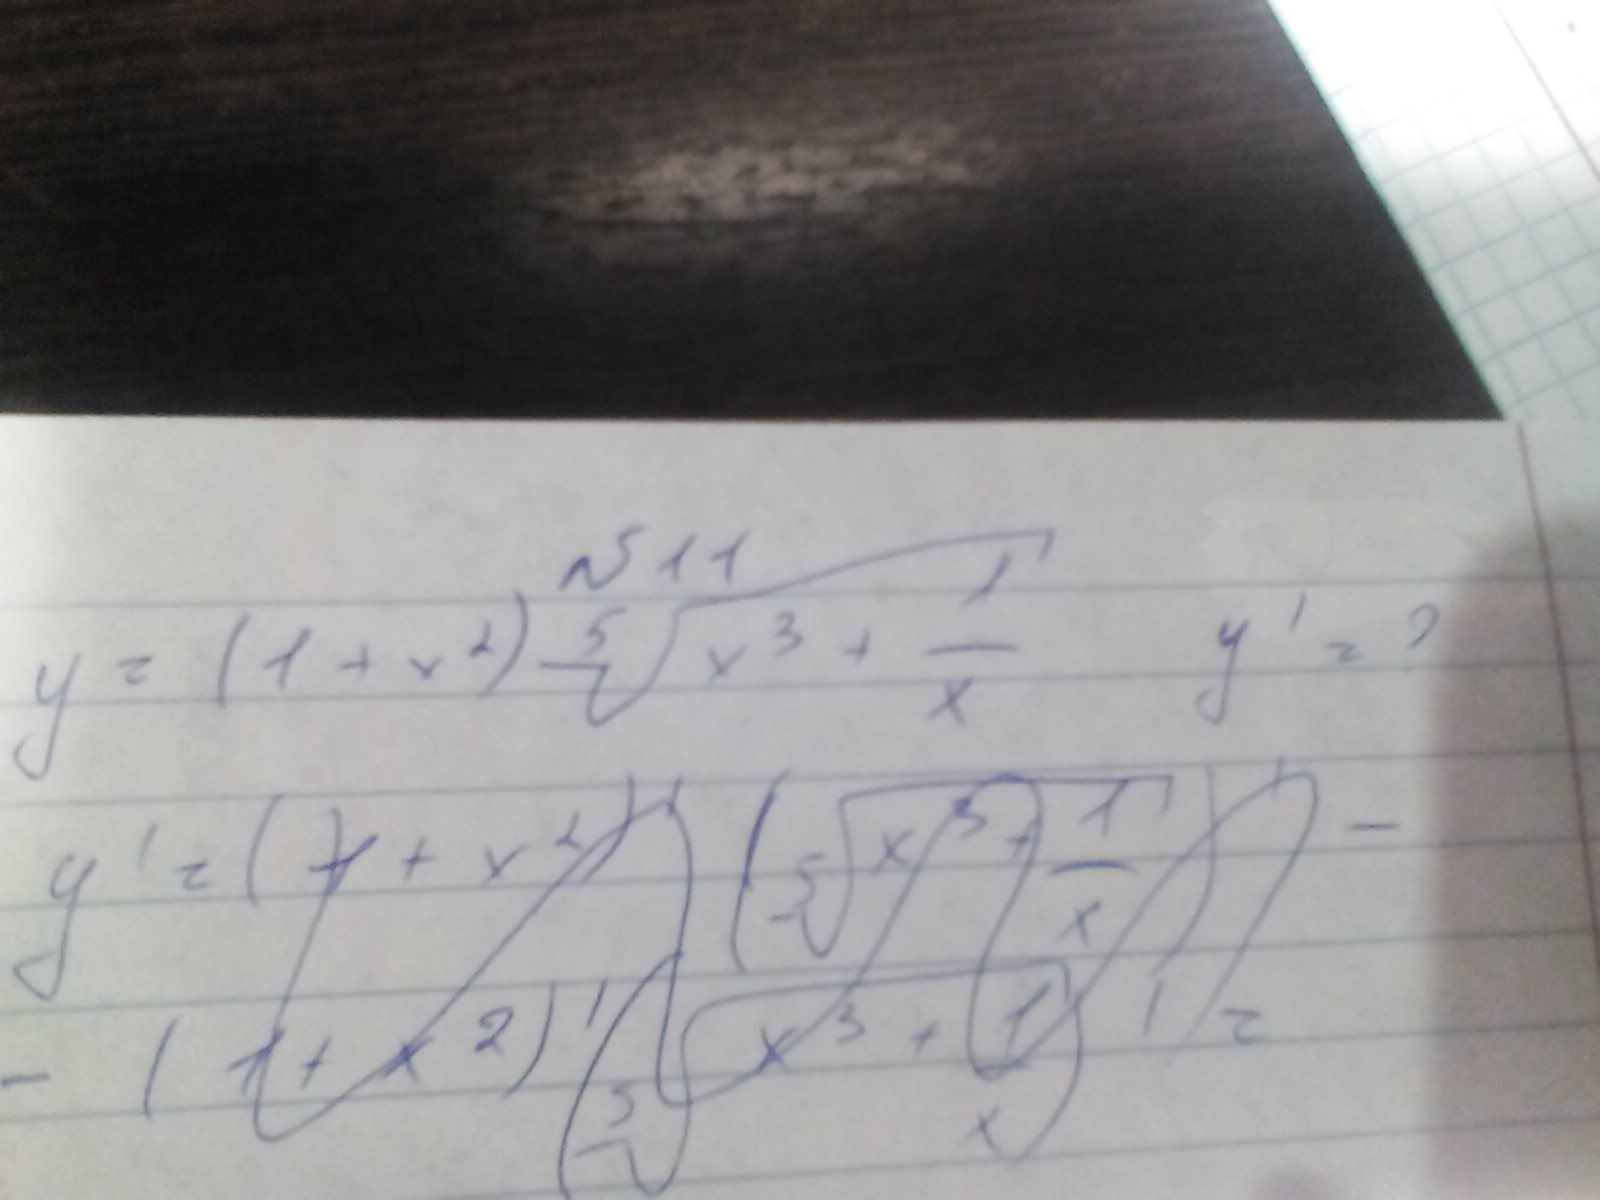 №11
y = (1 + x²) ⁵√(x³ + 1/x) y' = ?
y' = (1 + x²)' (⁵√(x³ + 1/x))' -
- (1 + x²)' (⁵√(x³ + 1/x))' =